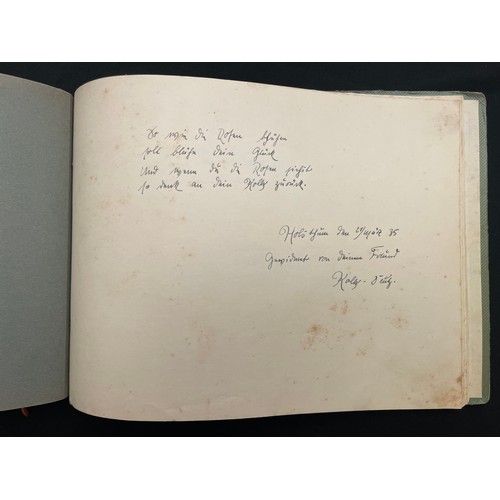 So wie die Rosen blühen
soll blühe dein Glück
Und wenn du die Rosen siehst
so denk an dein zurück.
den 35
Gewidmet von deinem Freund